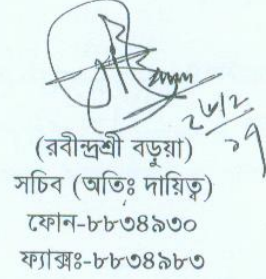 ২৮/২
১৭
(রবীন্দ্রশ্রী বড়ুয়া)
সচিব (অতিঃ দায়িত্ব)
ফোন-৮৮৩৪৯৩০
ফ্যাক্সঃ-৮৮৩৪৯৮৩